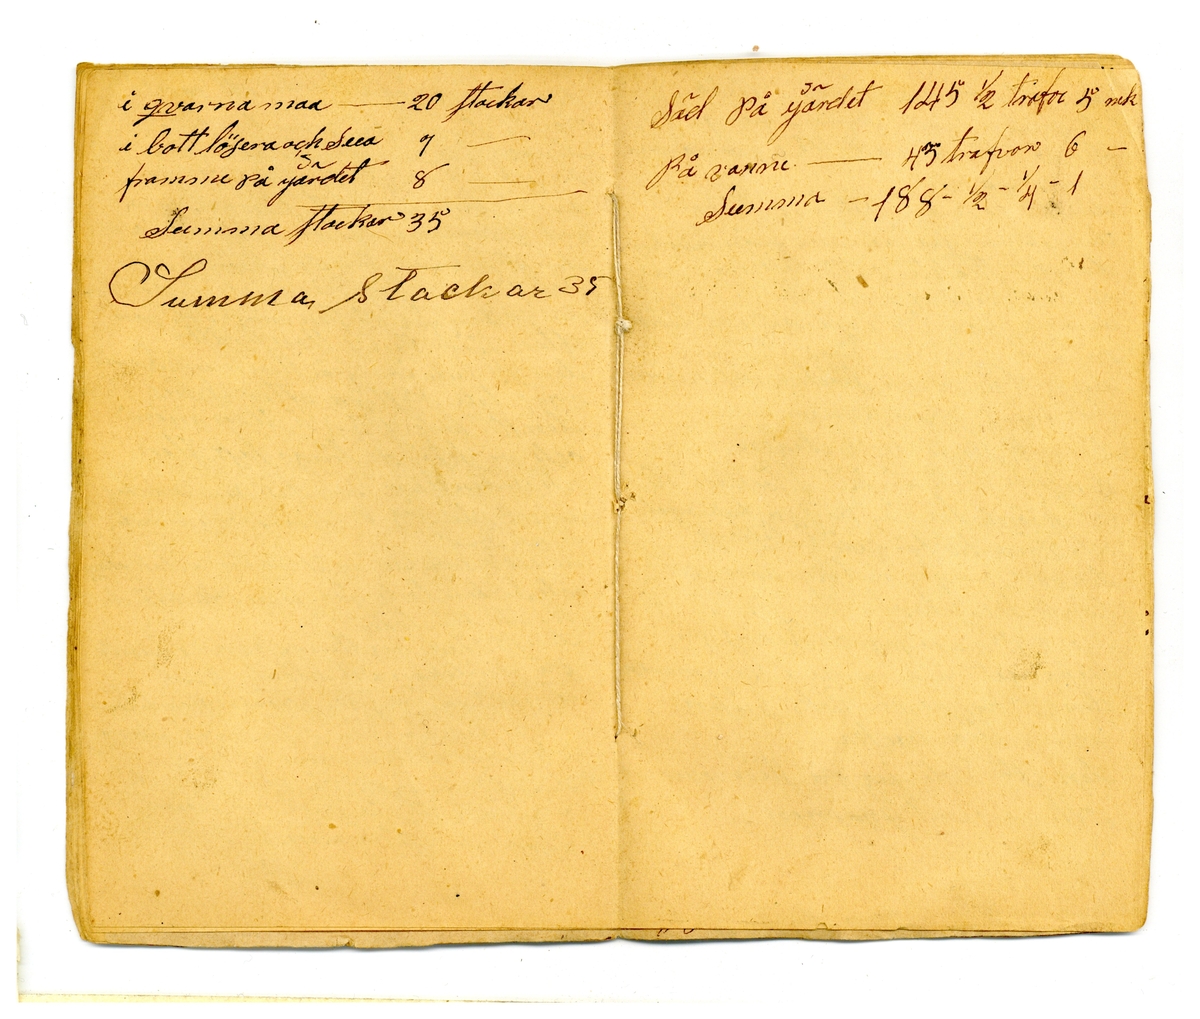 i qvarna maa — 20 stackar
i bott lösera och Seea 7 —
framme på gärdet 8 —
Summa stackar 35
Summa, Stackar 35
Säd på gärdet 145 1/2 trafvor 5 nek
På vanne — 43 trafvor 6 —
Summa — 188 - 1/2 - 1/4 - 1